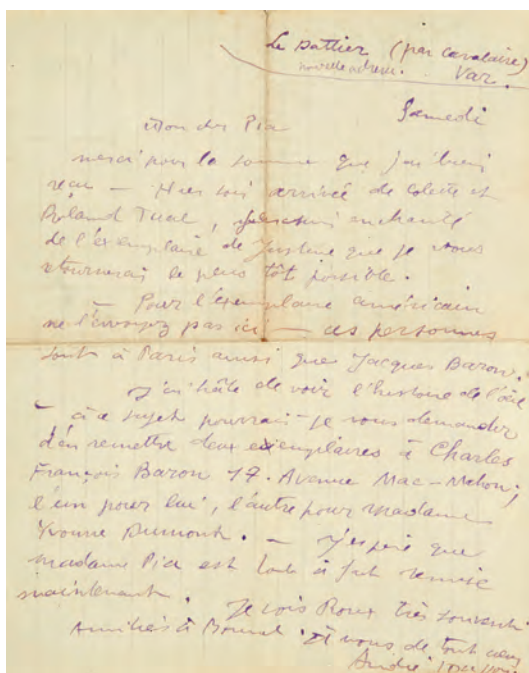 Le Dattier (par Cavalaire)
nouvelle adresse. Var.
Samedi
Mon cher Pia
merci pour la somme que j'ai bien
reçu — Hier soir arrivée de Colette et
Roland Tual, je suis enchanté
de l'exemplaire de Justine que je vous
retournerai le plus tôt possible.
— Pour l'exemplaire américain
ne l'envoyez pas ici — ces personnes
sont à Paris ainsi que Jacques Baron.
J'ai hâte de voir l'histoire de l'œil
— à ce sujet pourrais-je vous demander
d'en remettre deux exemplaires à Charles
François Baron 17. Avenue Mac-Mahon;
l'un pour lui, l'autre pour madame
Yvonne Dumont. — J'espère que
madame Pia est tout à fait remise
maintenant. Je vois Roux très souvent.
Amitiés à Bonnel. Et vous de tout cœur
André Masson